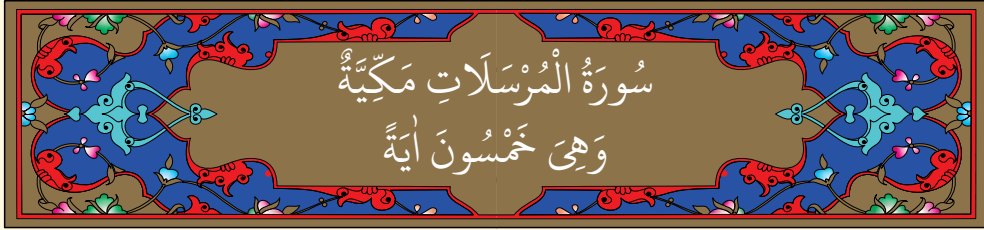 سُورَةُ الْمُرْسَلَاتِ مَكِّيَّةٌ
وَهِىَ خَمْسُونَ اٰيَةً